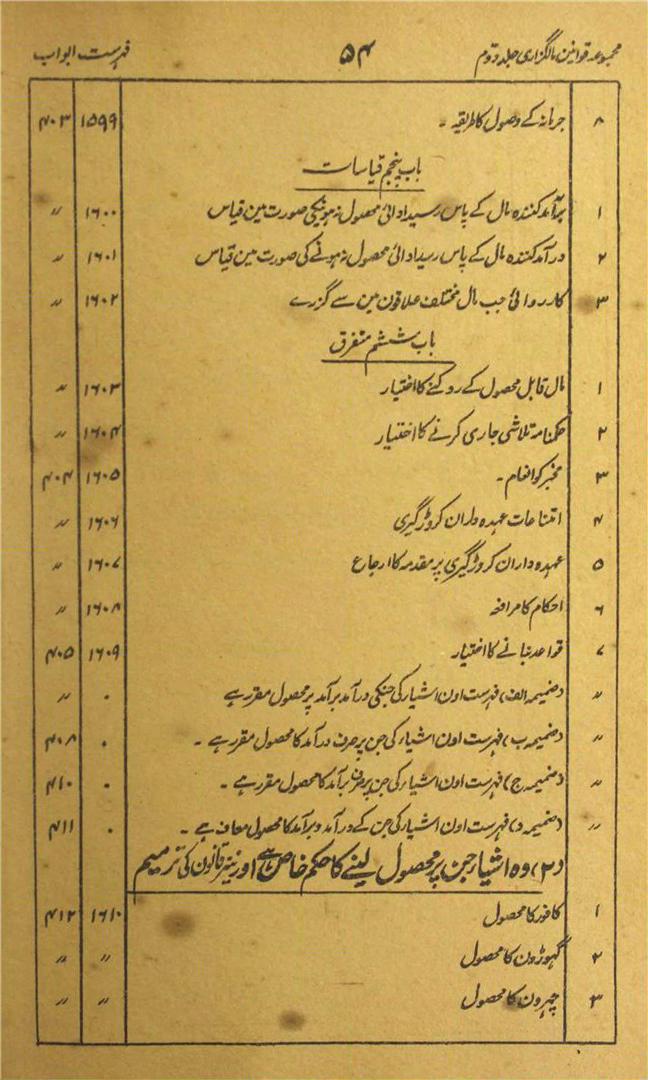 مجموعہ قوانین مالگزاری جلد دوم ۵۴ فہرست ابواب
۸ جرمانہ کے وصول کا طریقہ ۔ ۱۵۹۹ ۴۰۳
باب پنجم قیاسات
۱ برآمد کنندہ مال کے پاس رسید ادائی محصول نہ ہونیکی صورت مین قیاس ۱۶۰۰ 〃
۲ درآمد کنندہ مال کے پاس رسید ادائی محصول نہ ہونے کی صورت مین قیاس ۱۶۰۱ 〃
۳ کارروائی جب مال مختلف علاقون مین سے گزرے ۱۶۰۲ 〃
باب ششم متفرق
۱ مال قابل محصول کے روکنے کا اختیار ۱۶۰۳ 〃
۲ حکمنامہ تلاشی جاری کرنے کا اختیار ۱۶۰۴ 〃
۳ مخبر کو انعام ۔ ۱۶۰۵ ۴۰۴
۴ امتناعات عہدہ داران کروڑگیری ۱۶۰۶ 〃
۵ عہدہ داران کروڑگیری پر مقدمہ کا ارجاع ۱۶۰۷ 〃
۶ احکام کا مرافعہ ۱۶۰۸ 〃
۷ قواعد بنانے کا اختیار ۱۶۰۹ ۴۰۵
〃 (ضمیمہ الف) فہرست اون اشیار کی جنکی درآمد برآمد پر محصول مقرر ہے ۰ 〃
〃 (ضمیمہ ب) فہرست اون اشیاء کی جن پر صرف درآمد کا محصول مقرر ہے ۔ ۰ ۴۰۸
〃 (ضمیمہ ج) فہرست اون اشیار کی جن پر صرف برآمد کا محصول مقرر ہے ۔ ۰ ۴۱۰
〃 (ضمیمہ د) فہرست اون اشیار کی جن کے درآمد و برآمد کا محصول معاف ہے ۔ ۰ ۴۱۱
(۲) وہ اشیار جن پر محصول لینے کا حکم خاص ہے اور نیز قانون کی ترمیم
۱ کافور کا محصول ۱۶۱۰ ۴۱۲
۲ گہوڑون کا محصول 〃 〃
۳ چمڑون کا محصول 〃 〃